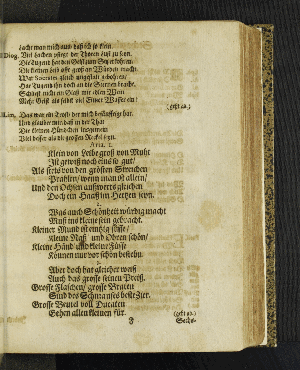 lacht man mich aus daß ich so klein
Diog. Viel lachen pfleget der Thoren Lust zu seyn.
Die Tugend hat den Geist zum Sitz erkohren
Die kleinen sind offt groß an Würden
War Socrates gleich ungestalt gebohren/
Hat Tugend ihn doch an die Sterren bracht.
Schlägt nicht ein Glaß mit edlen Wein
Mehr Geist als selbst viel Eimer Wasser ein!
(geht ab.)
Lion. Das war ein Trost der mich
Und glaubet mir daß in der That
Die kleinen Händchen ingemein
Viel besser als die grossen Knebel seyn.
ARIA. 1.
Klein von Leibe groß von Muht
Ist gewiß noch eins so gut/
Als seyn von den grossen
Prahlen/ wenn man sie allein/
Und den Ochsen auswerts gleichen
Doch ein Haaß im Hertzen seyn.
2.
Was auch Schönheit würdig macht
Muß uns kleine seyn gebracht.
Kleiner Mund ist einzig süsse/
Kleine Naß und Ohren schön/
Kleine Händ und kleine Füsse
Können nur vor schön bestehn.
3.
Aber doch hat gleicher weiß
Auch das grosse seinen Preiß.
Grosse Flaschen/ grosse Braten
Sind des Schmauses beste Zier.
Grosse Beutel voll Ducaten
Gehen allen kleinen für.
(geht ab.)
Sechs-